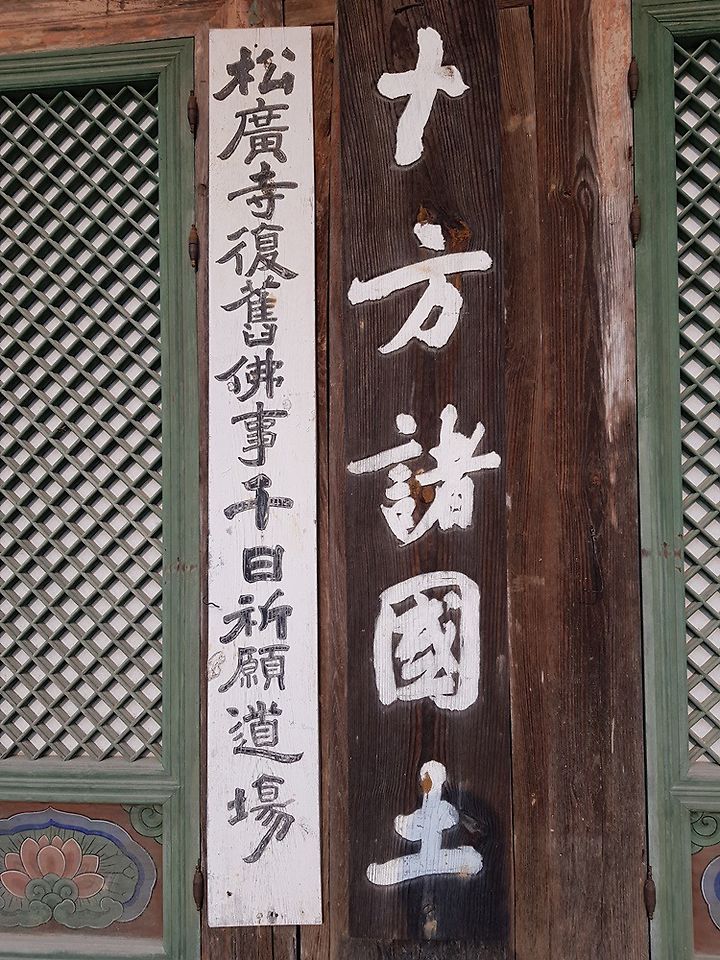 十方諸國土
松廣寺復舊佛事千日祈願道場